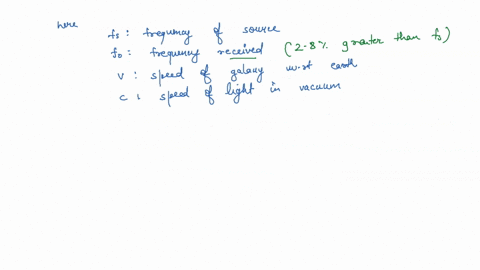 here
fs : frequency of source
fo : frequency received (2.8% greater than fs)
v : speed of galaxy w.r.t earth
c : speed of light in vacuum